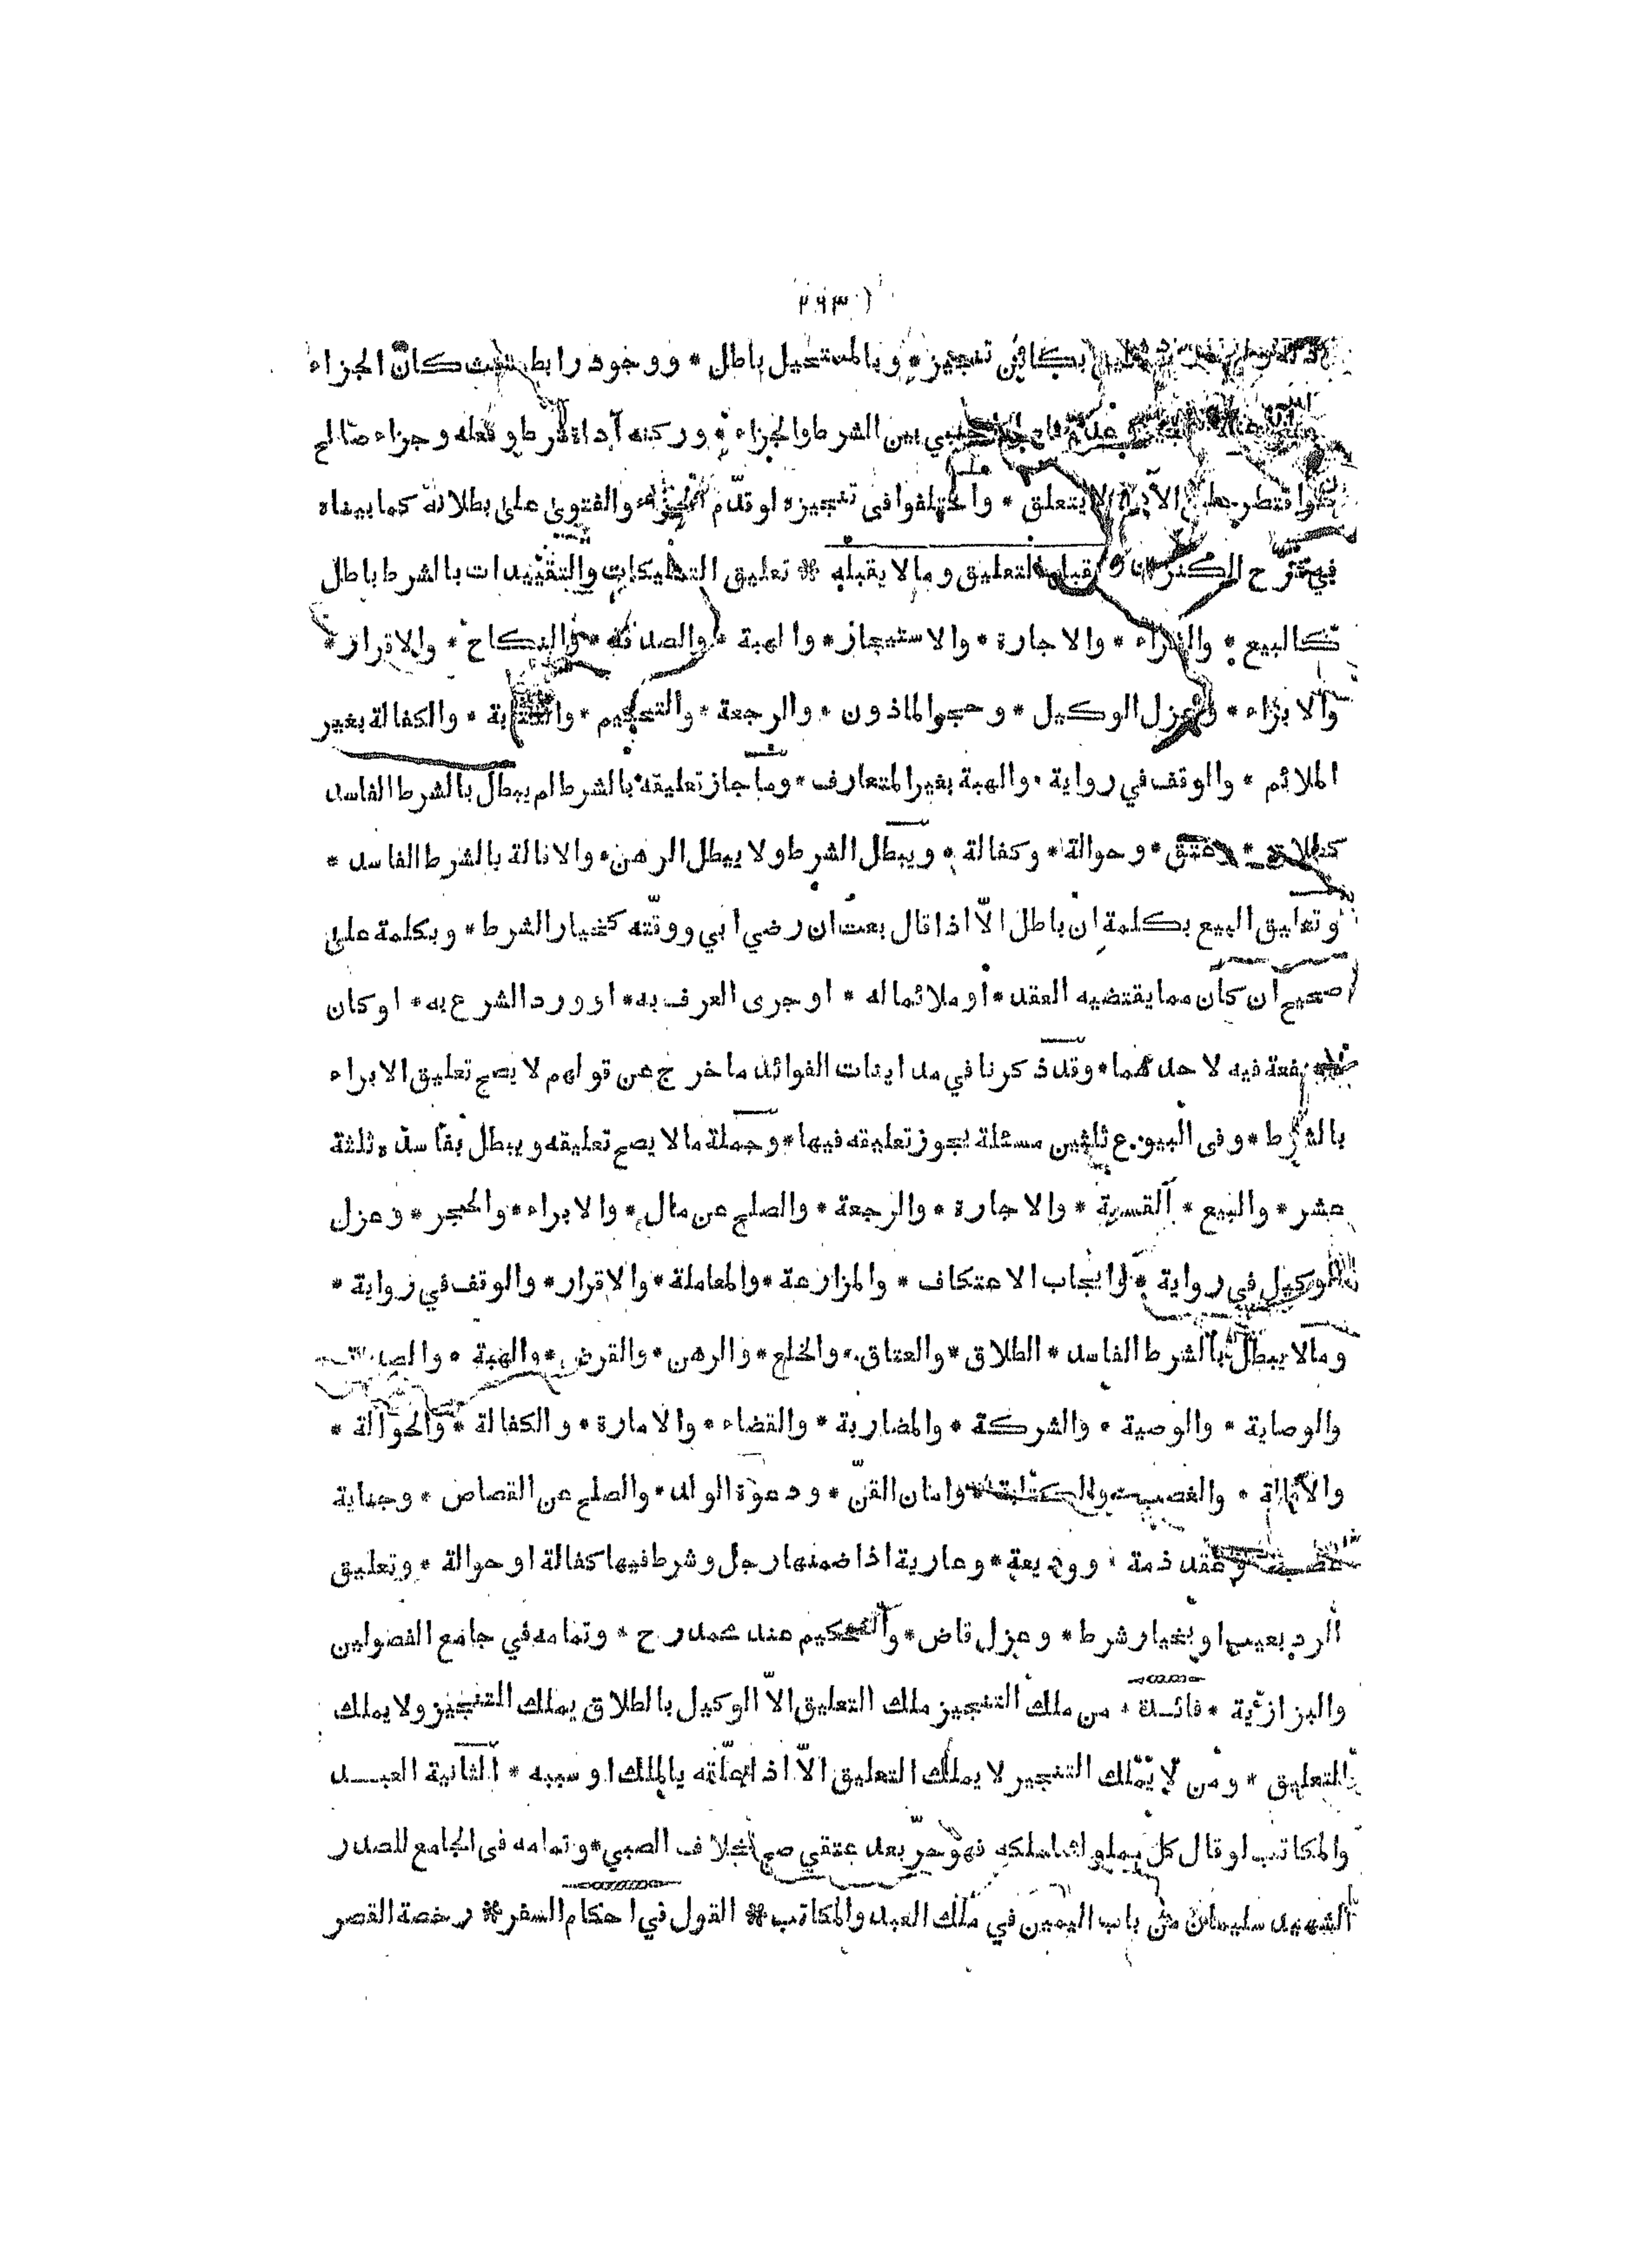 ( ٣٩٣
بكائن تنجيز * وبالمستحيل باطل * ووجود رابط حيث كان الجزاء
بين الشرط والجزاء * وركنه أداة شرط وفعله وجزاء صالح
يتعلق * واختلفوا فى تنجيزه او قدّم الجزاء والفتوى على بطلانه كما بيناه
فى شرح الكنز التعليق وما لا يقبله * تعليق التمليكات والتقييدات بالشرط باطل
كالبيع * والشراء * والاجارة * والاستيجار * والهبة * والصدقة * والنكاح * والاقرار *
والابراء * وعزل الوكيل * وحجر الماذون * والرجعة * والتحكيم * والكتابة * والكفالة بغير
الملائم * والوقف في رواية * والهبة بغير المتعارف * وما جاز تعليقه بالشرط لم يبطل بالشرط الفاسد
كطلاق * وعتق * وحوالة * وكفالة * ويبطل الشرط ولا يبطل الرهن * والاقالة بالشرط الفاسد *
وتعليق البيع بكلمة ان باطل الّا اذا قال بعت ان رضي ابي ووقّته كخيار الشرط * وبكلمة على
صحيح ان كان مما يقتضيه العقد * أو ملائما له * او جرى العرف به * او ورد الشرع به * او كان
لا منفعة فيه لاحدهما * وقد ذكرنا في مداينات الفوائد ما خرج عن قولهم لا يصح تعليق الابراء
بالشرط * وفى البيوع ثلثين مسئلة يجوز تعليقه فيها * وجملة ما لا يصح تعليقه ويبطل بفاسده ثلثة
عشر * والبيع * القسمة * والاجارة * والرجعة * والصلح عن مال * والابراء * والحجر * وعزل
الوكيل في رواية * وايجاب الاعتكاف * والمزارعة * والمعاملة * والاقرار * والوقف في رواية *
وما لا يبطل بالشرط الفاسد * الطلاق * والعتاق * والخلع * والرهن * والقرض * والهبة * والصدقة
والوصاية * والوصية * والشركة * والمضاربة * والقضاء * والامارة * والكفالة * والحوالة *
والاقالة * والغصب * والكتابة * وامان القنّ * ودعوة الولد * والصلح عن القصاص * وجناية
غصب * وعقد ذمة * ووديعة * وعارية اذا ضمنها رجل وشرط فيها كفالة او حوالة * وتعليق
الرد بعيب او بخيار شرط * وعزل قاض * والتحكيم عند محمد رح * وتمامه في جامع الفصولين
والبزازية * فائدة * من ملك التنجيز ملك التعليق الاّ الوكيل بالطلاق يملك التنجيز ولا يملك
التعليق * ومن لا يملك التنجيز لا يملك التعليق الاّ اذا علّقه بالملك او سببه * الثانية العبد
والمكاتب لو قال كل مملوك املكه فهو حرّ بعد عتقي صح بخلاف الصبي * وتمامه فى الجامع للصدر
الشهيد سليمان من باب اليمين في ملك العبد والمكاتب * القول في احكام السفر * رخصة القصر